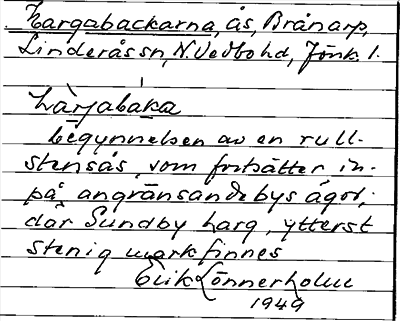 Hargabackarna, ås, Brånarp,
Linderås sn, N. Vedbo hd, Jönk. l.
hàrjabáka
begynnelsen av en rull-
stensås, som fortsätter in-
på angränsande bys ägor,
där Sundby harg, ytterst
stenig mark finnes
Erik Lönnerholm
1949